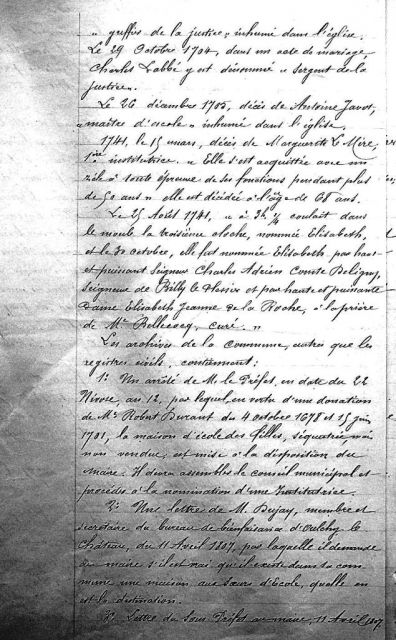 « greffier de la justice » inhumé dans l'église.
Le 29 Octobre 1704, dans un acte de mariage
Charles Labbé y est dénommé « sergent de la
justice ».
Le 26 décembre 1705, décès de Antoine Javot,
« maître d'école » inhumé dans l'église.
1741, le 15 mars, décès de Marguerite Le Mère,
1ère institutrice. « Elle s'est acquittée avec un
zèle à toute épreuve de ses fonctions pendant plus
de 50 ans » elle est décédée à l'âge de 68 ans.
Le 25 Août 1741, « à 3h ½ coulait dans
le moule la troisième cloche, nommée Elisabeth,
et le 30 octobre, elle fut nommée Elisabeth par haut
et puissant Seigneur Charles Adrien Comte Deligny,
Seigneur de Billy le Plessier et par haute et puissante
Dame Elisabeth Jeanne de la Roche, à la prière
de Mr Bellecocq, curé. »
Les archives de la commune, autres que les
registres civils, contiennent :
1° Un arrêté de M. le Préfet, en date du 22
Nivôse, an 12, par lequel en vertu d'une donation
de Mr Robert Durant du 4 octobre 1678 et 15 juin
1701, la maison d'école des filles, séquestrée mais
non vendue, est mise à la disposition du
maire. Il devra assembler le conseil municipal et
procéder à la nomination d'une Institutrice.
2° Une lettre de M. Dujay, membre et
secrétaire du bureau de bienfaisance d'Oulchy le
Château, du 11 Avril 1807, par laquelle il demande
au maire s'il est vrai qu'il existe dans sa com
mune une maison aux Sœurs d'Ecole, quelle en
est la destination.
Lettre du Sous Préfet au maire, 11 Avril 1807